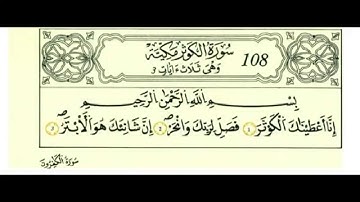 سُورَةُ الْكَوْثَرِ مَكِّيَّة 108
وَهِيَ ثَلَاثُ ءَايَاتٍ ٣
بِسْمِ اللَّهِ الرَّحْمَٰنِ الرَّحِيمِ
إِنَّا أَعْطَيْنَاكَ الْكَوْثَرَ ١ فَصَلِّ لِرَبِّكَ وَانْحَرْ ٢ إِنَّ شَانِئَكَ هُوَ الْأَبْتَرُ ٣
سُورَةُ الْكَافِرُونَ